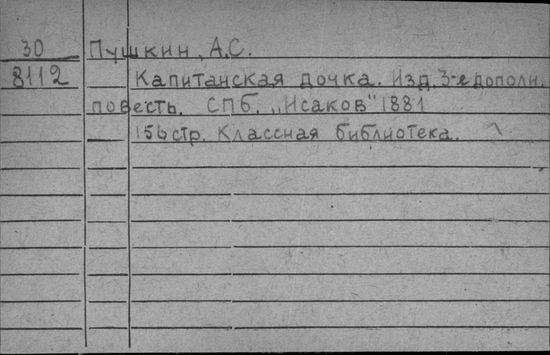 30 Пушкин, А.С.
8112 Капитанская дочка. Изд. 3-е дополн.
повесть. СПб. „Исаков" 1881
156 стр. Классная библиотека.